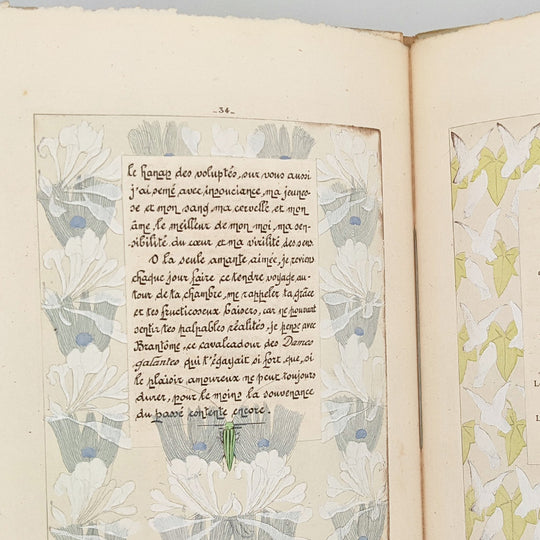 _34_
le hanap des voluptés, sur vous aussi
j'ai semé avec insouciance, ma jeunes-
se et mon sang, ma cervelle et mon
âme, le meilleur de mon moi, ma sen-
sibilité du cœur et ma virilité des sens.
O la seule amante, aimée, je reviens
chaque jour faire ce tendre voyage au-
tour de ta chambre, me rappeler ta grâce
et tes fructicoseux baisers, car ne pouvant
sentir tes palpables réalités, je pense avec
Brantôme, ce cavalcadour des Dames
galantes qui t'égayait si fort, que, si
le plaisir amoureux ne peut toujours
durer, pour le moins la souvenance
du passé contente encore.